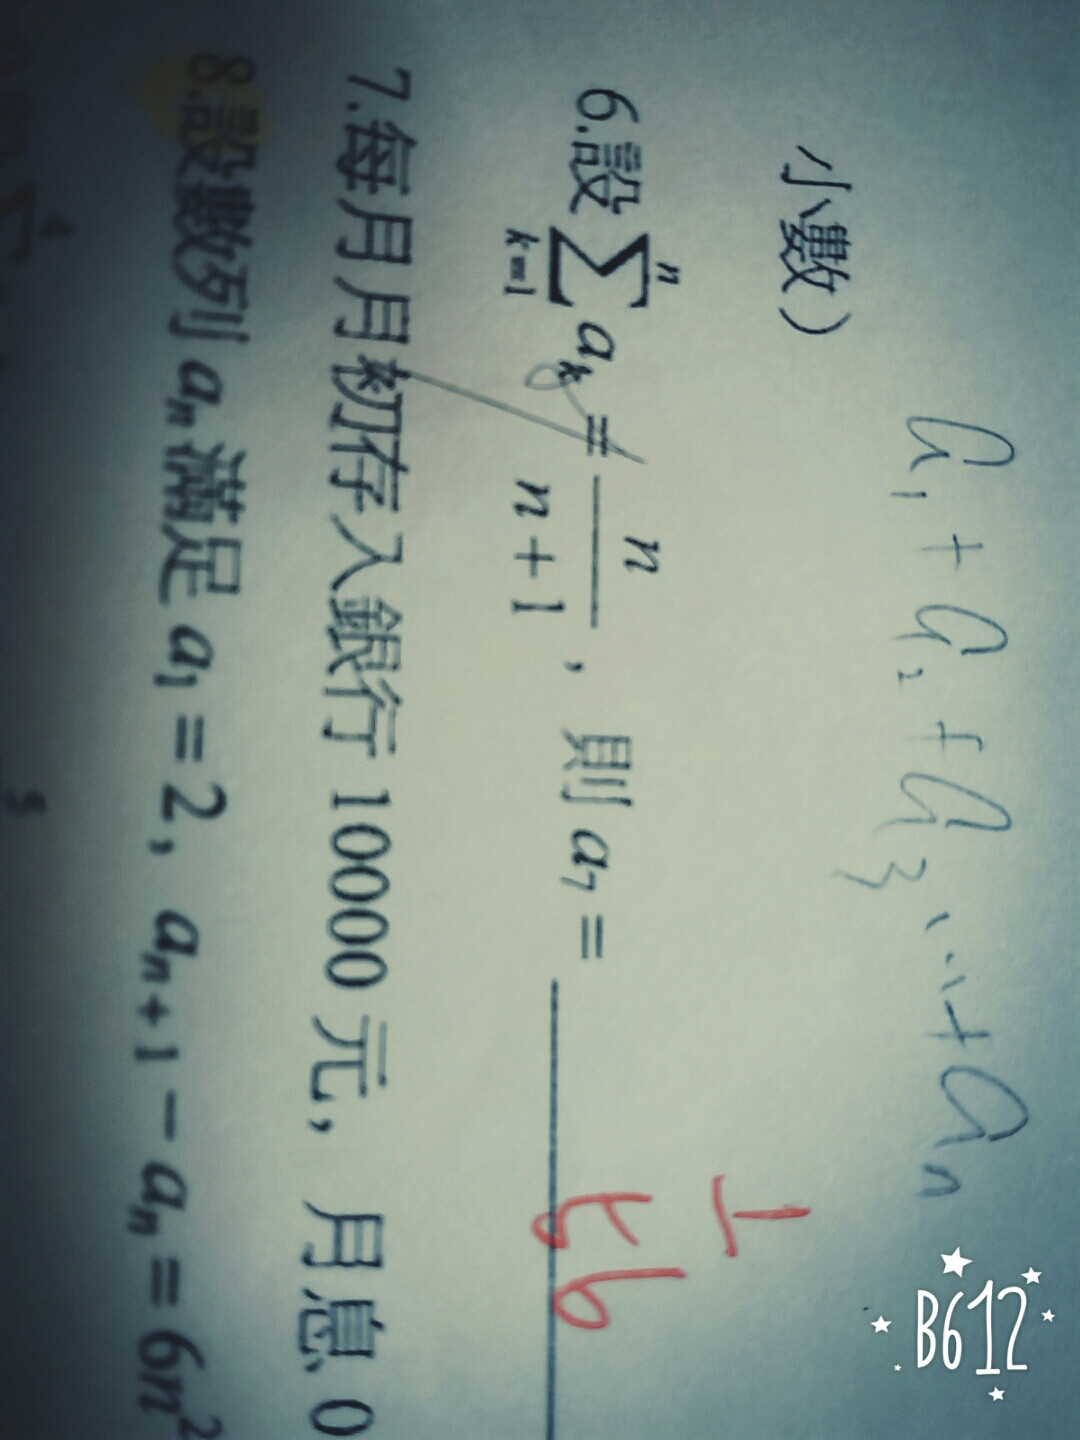 a₁ + a₂ + a₃ ... + aₙ
小數)
6.設 \sum_{k=1}^{n} a_k = \frac{n}{n+1}，則 a₇ = ______ \frac{1}{56}
7.每月月初存入銀行 10000 元，月息 0
8.設數列 aₙ 滿足 a₁ = 2，aₙ₊₁ − aₙ = 6n²
B612